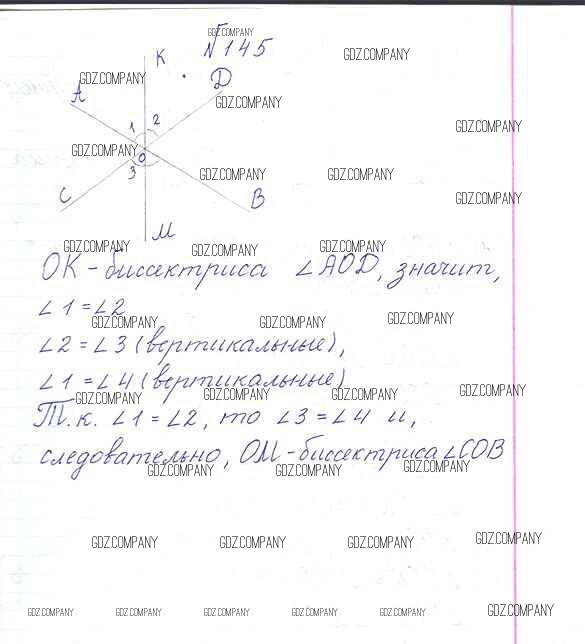 №145
K
A
D
1 2
O
3
C
B
M
OK - биссектриса ∠AOD, значит,
∠1 = ∠2
∠2 = ∠3 (вертикальные),
∠1 = ∠4 (вертикальные)
Т.к. ∠1 = ∠2, то ∠3 = ∠4 и,
следовательно, OM - биссектриса ∠COB
GDZ.COMPANY
GDZ.COMPANY
GDZ.COMPANY
GDZ.COMPANY
GDZ.COMPANY
GDZ.COMPANY
GDZ.COMPANY GDZ.COMPANY
GDZ.COMPANY
GDZ.COMPANY GDZ.COMPANY GDZ.COMPANY
GDZ.COMPANY GDZ.COMPANY GDZ.COMPANY
GDZ.COMPANY GDZ.COMPANY GDZ.COMPANY GDZ.COMPANY
GDZ.COMPANY GDZ.COMPANY GDZ.COMPANY
GDZ.COMPANY GDZ.COMPANY GDZ.COMPANY GDZ.COMPANY
GDZ.COMPANY GDZ.COMPANY GDZ.COMPANY GDZ.COMPANY GDZ.COMPANY GDZ.COMPANY